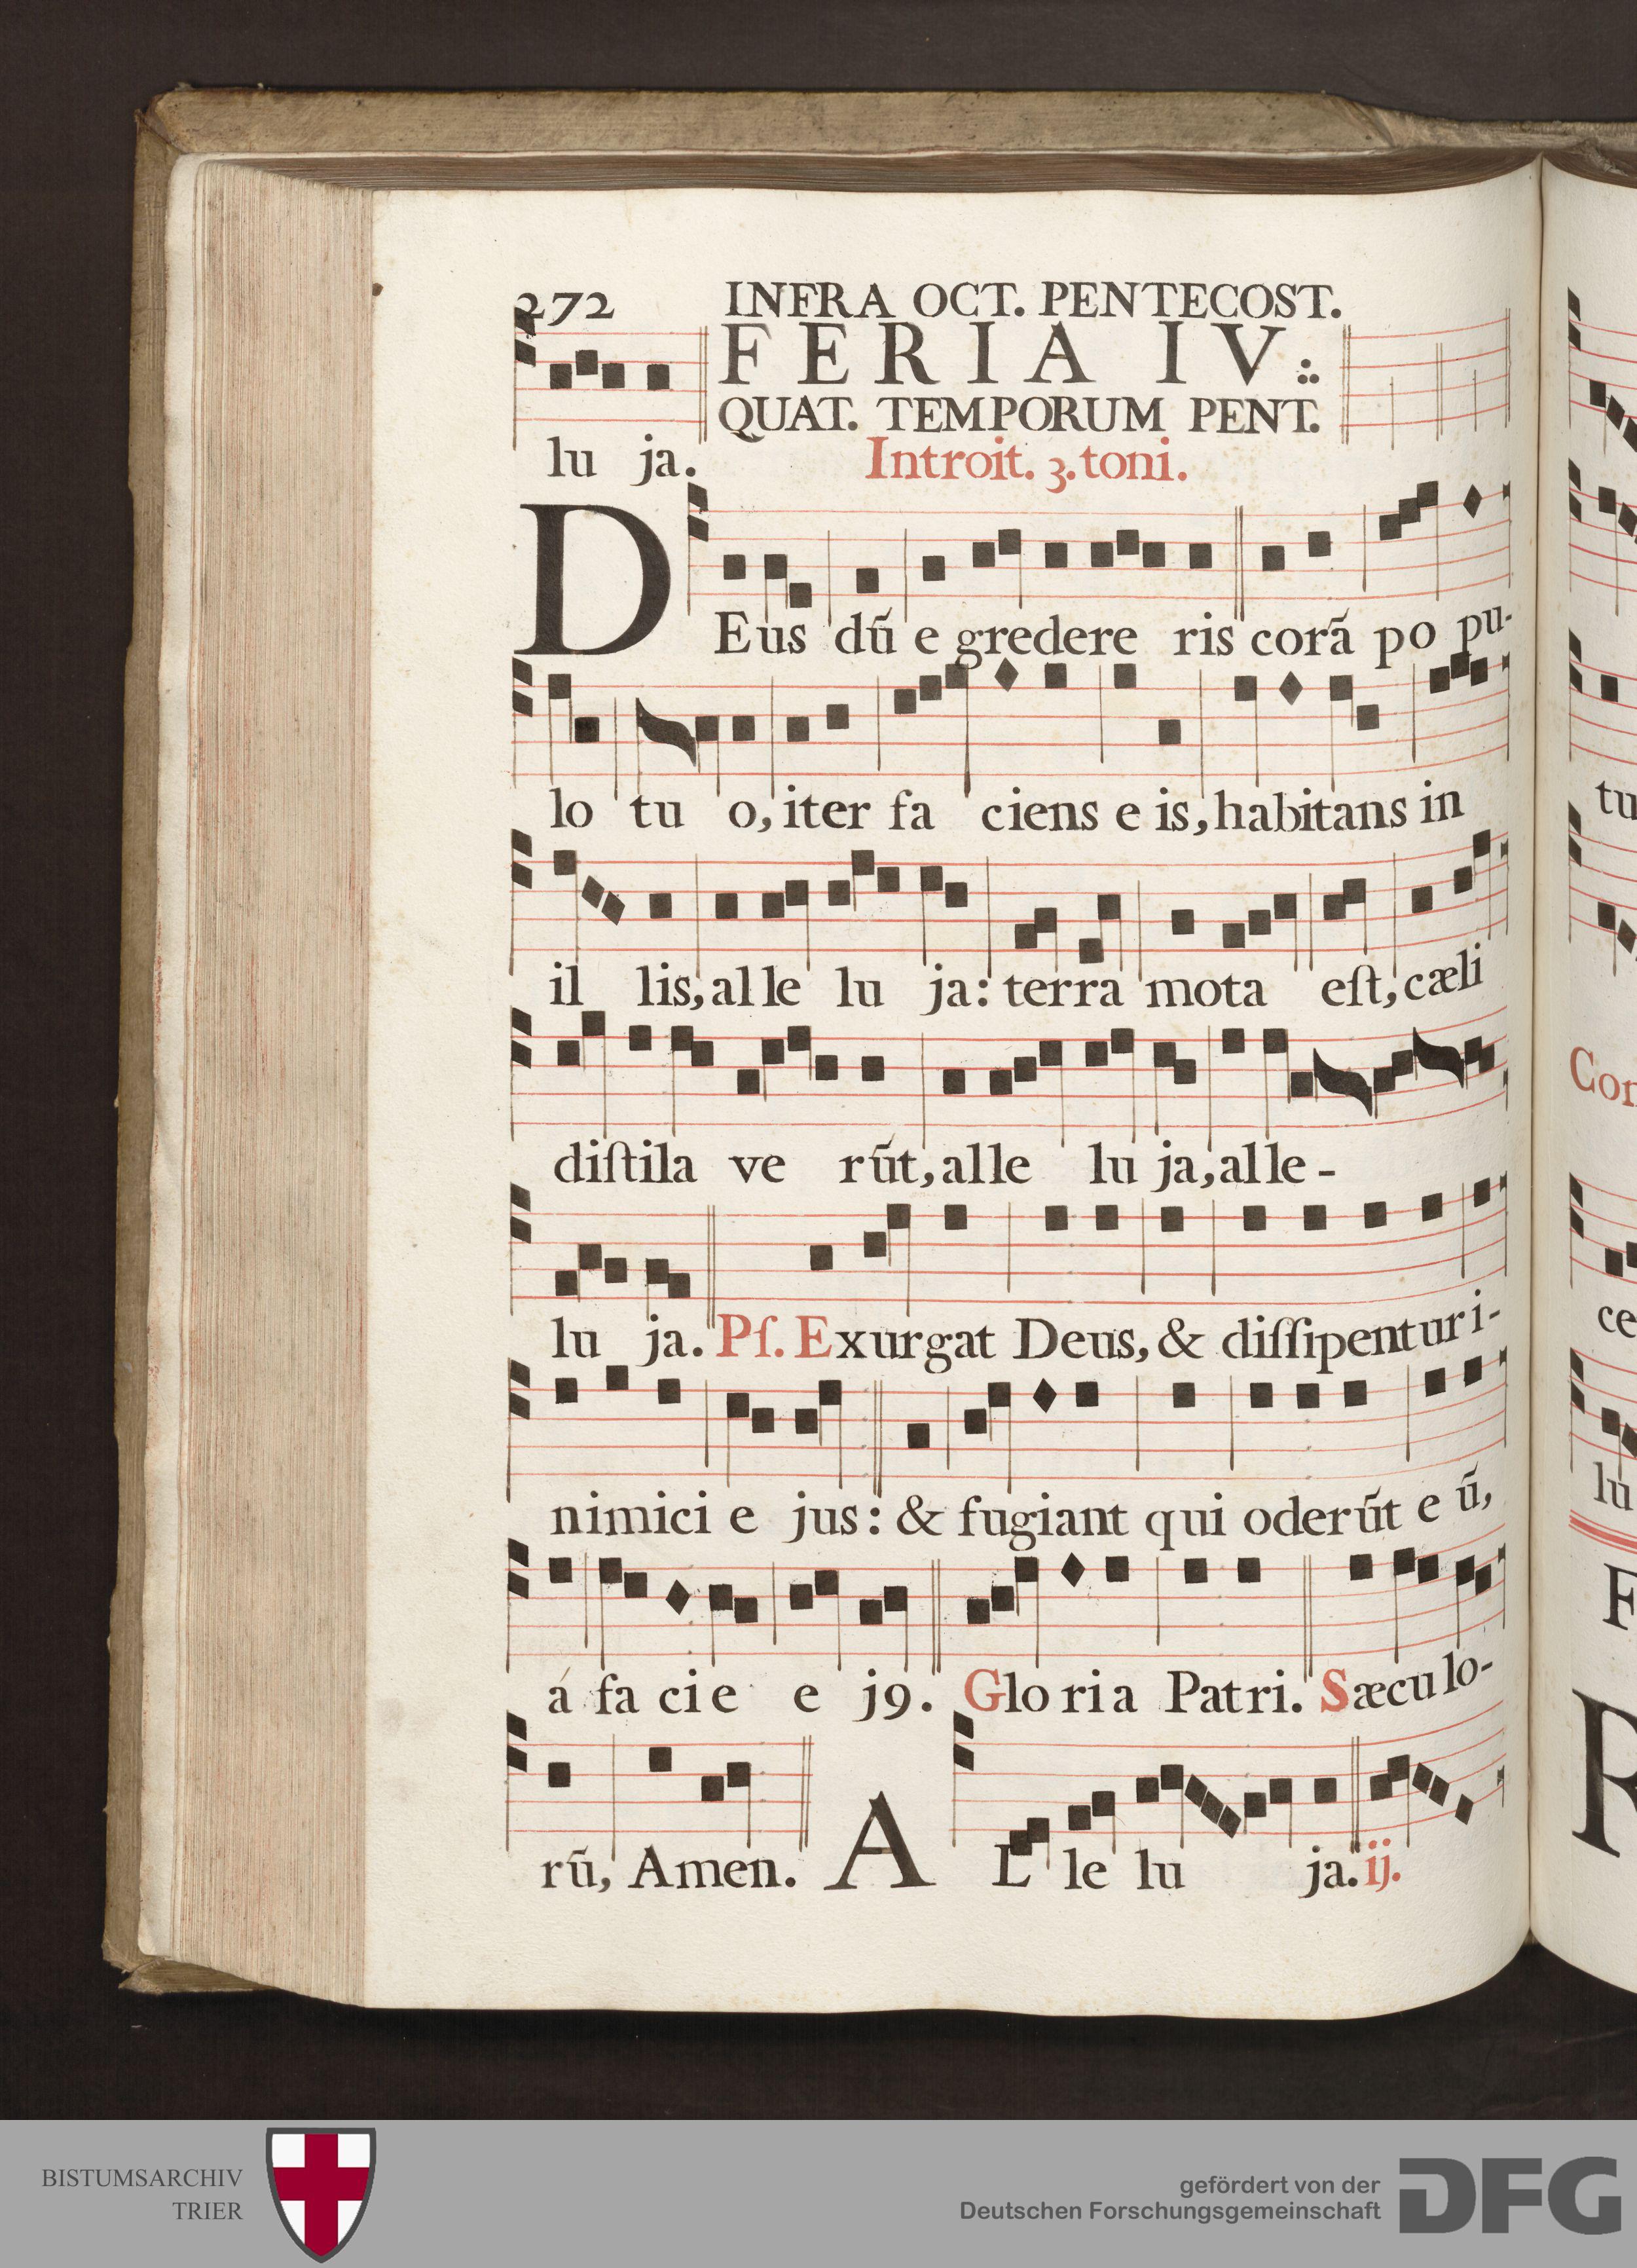 272 INFRA OCT. PENTECOST.
FERIA IV.
QUAT. TEMPORUM PENT.
lu ja. Introit. 3. toni.
DEus dũ e gredere ris corã po pu-
lo tu o, iter fa ciens e is, habitans in
il lis, al le lu ja: terra mota eſt, cæli
diſtila ve rũt, alle lu ja, al le-
lu ja. Pſ. Exurgat Deus, & diſſipentur i-
nimici e jus: & fugiant qui oderũt e ũ,
á fa cie e j9. Glo ri a Patri. Sæcu lo-
rũ, Amen. AL le lu ja. ij.
tu
Con
ce
lu
F
R
BISTUMSARCHIV
TRIER
gefördert von der
Deutschen Forschungsgemeinschaft
DFG